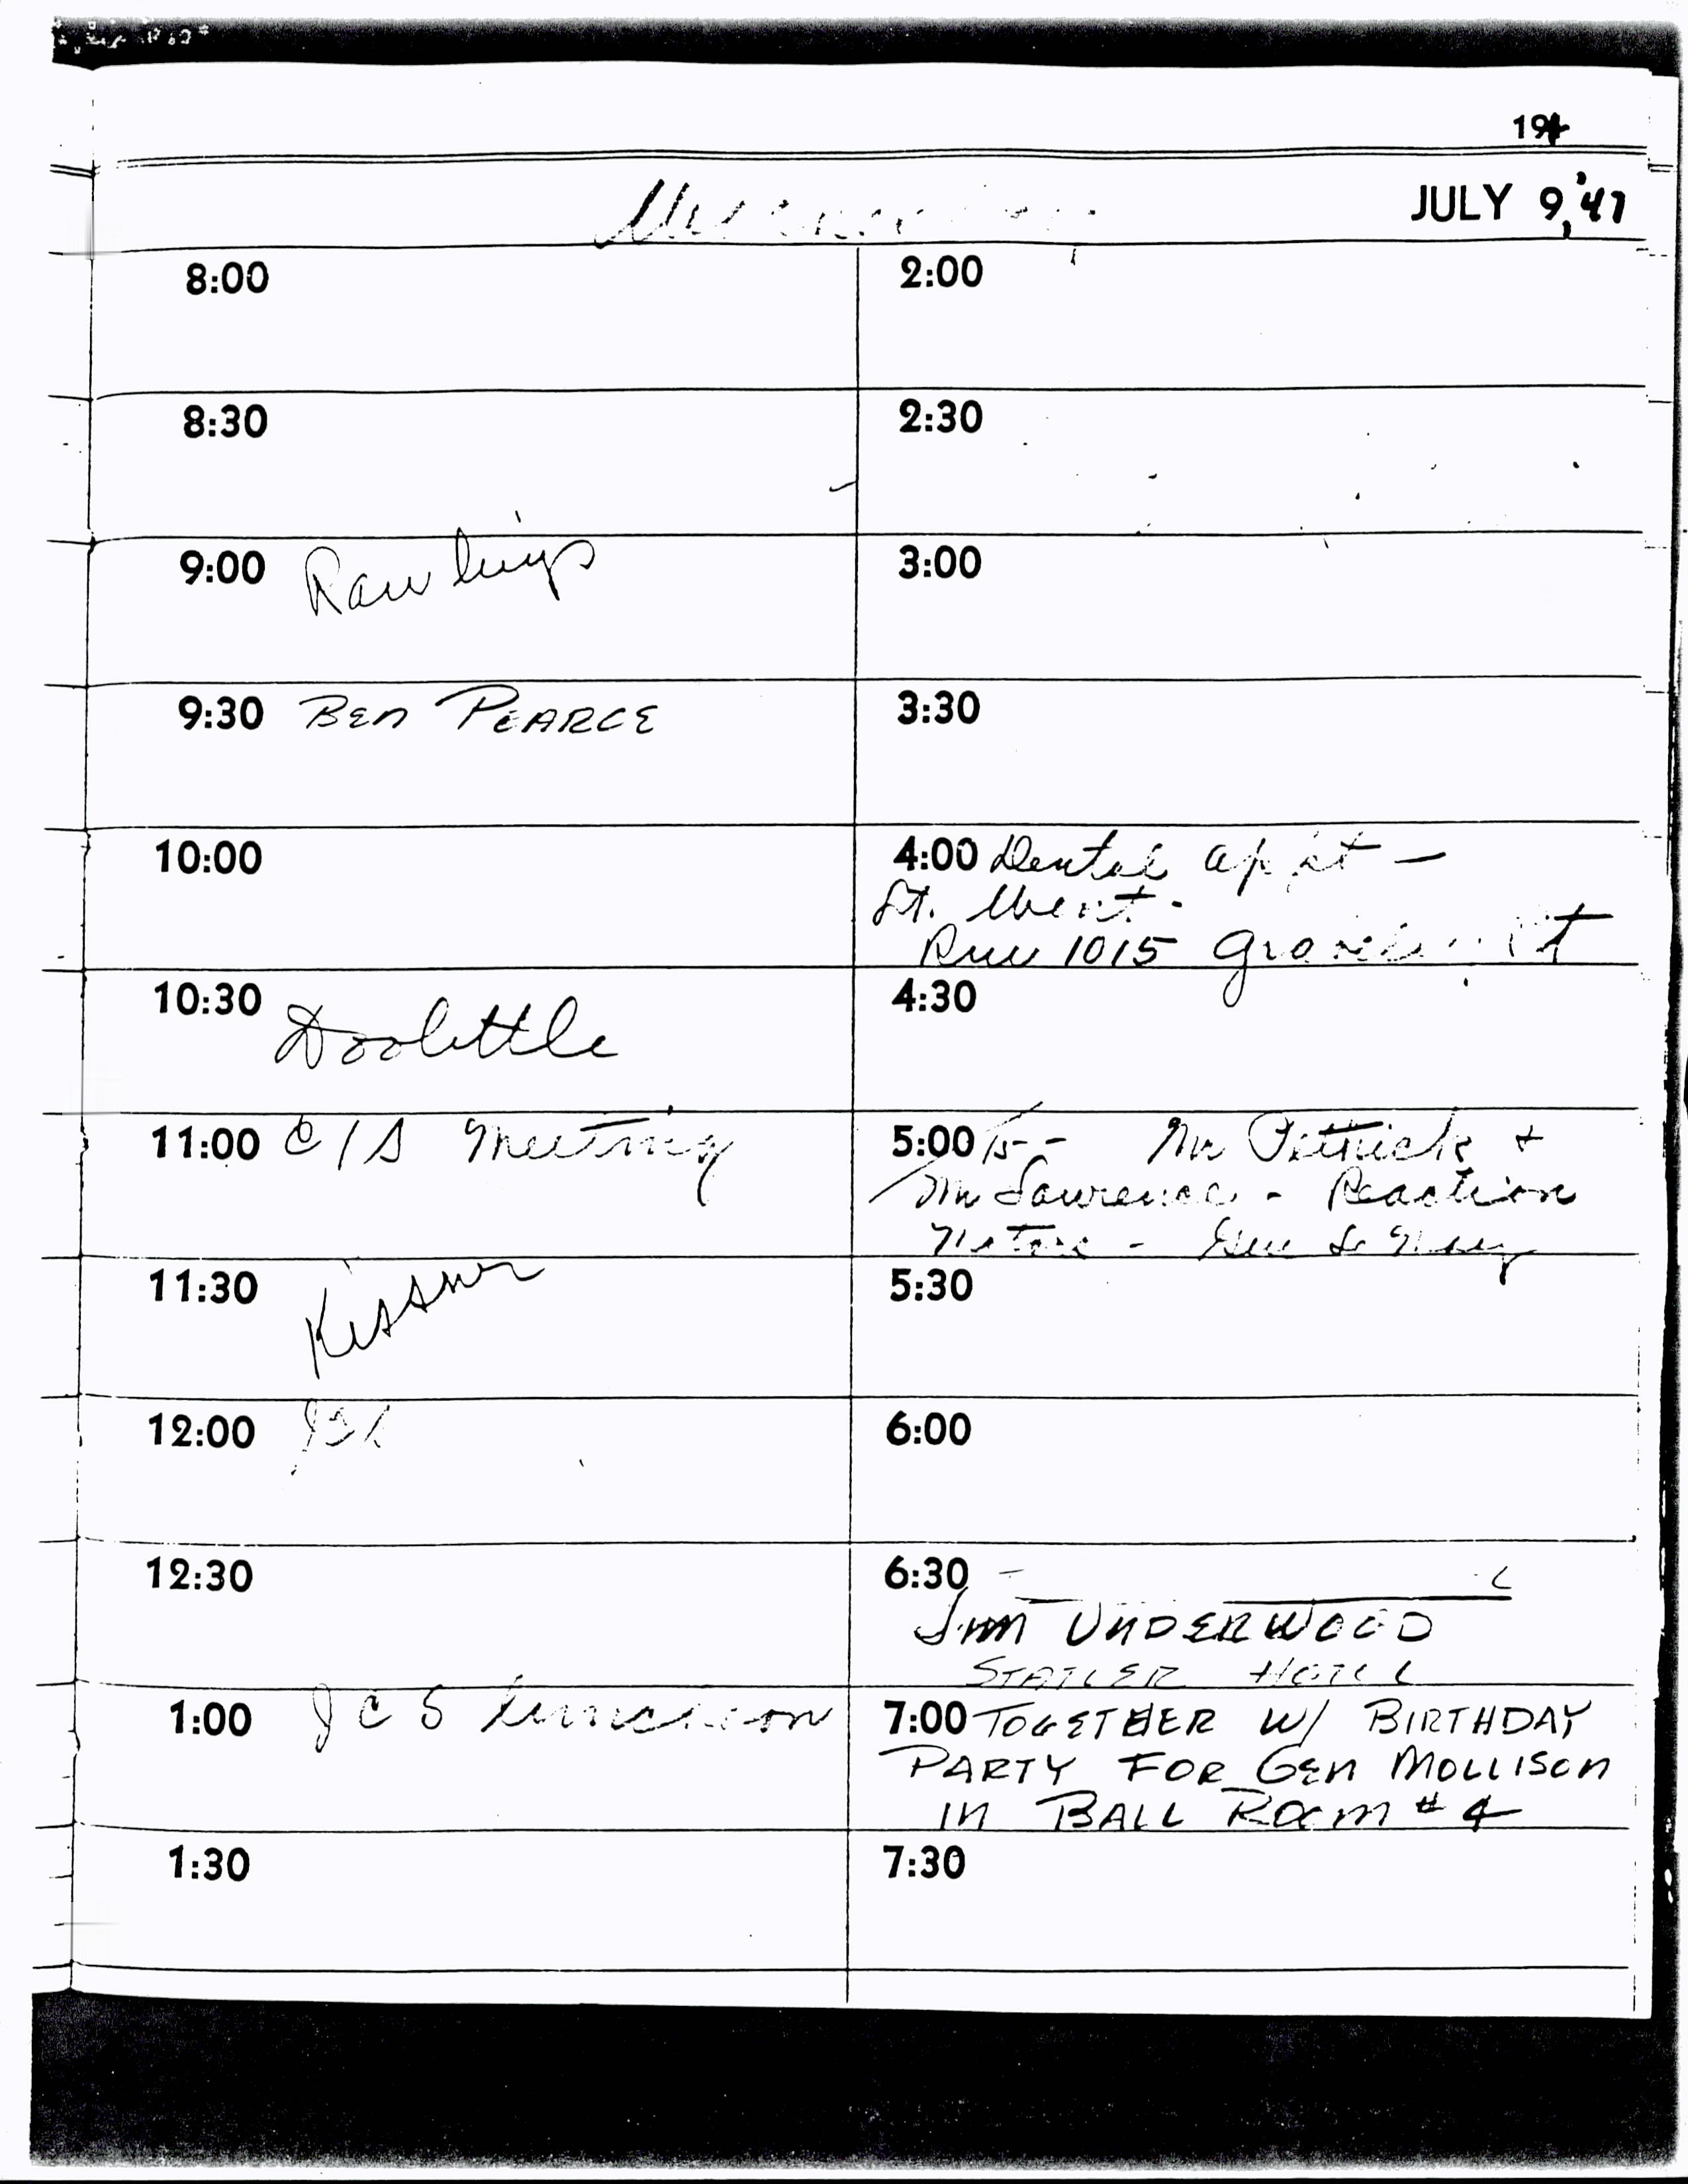 JULY 9, '47
8:00
8:30
9:00 Rawlings
9:30 BEN PEARCE
10:00
10:30
Doolittle
11:00 C/S Meeting
11:30 Kissner
12:00
12:30
1:00 JCS luncheon
1:30
2:00
2:30
3:00
3:30
4:00 Dental ap't —
Lt.
Rm 1015
4:30
5:00/15 - Mr Pettrick +
Mr Lawrence - Reaction
Motors - Gen Le May
5:30
6:00
6:30
JIM UNDERWOOD
STATLER HOTEL
7:00 TOGETHER W/ BIRTHDAY
PARTY FOR GEN MOLLISON
IN BALL ROOM #4
7:30